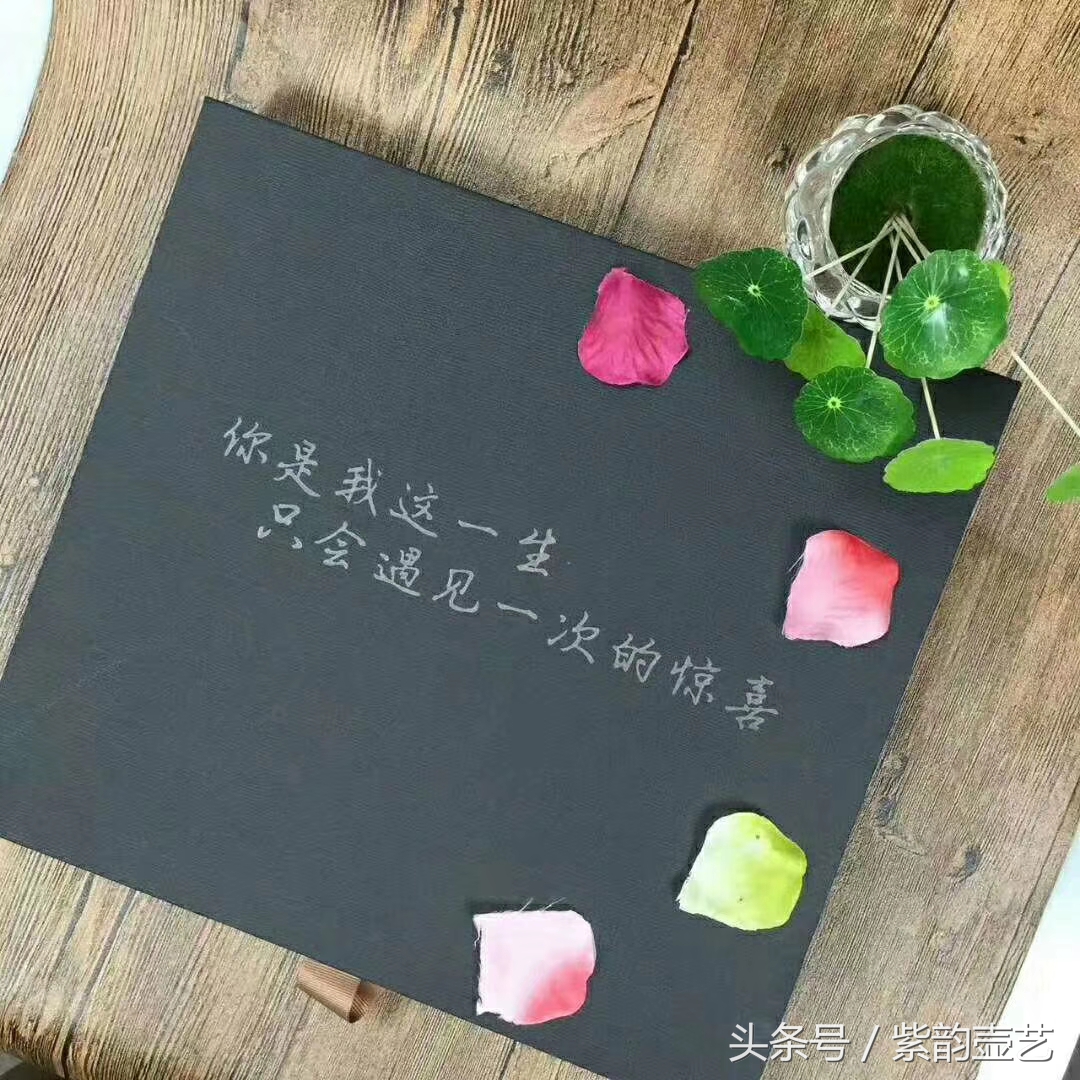 你是我这一生
只会遇见一次的惊喜
头条号 / 紫韵壶艺